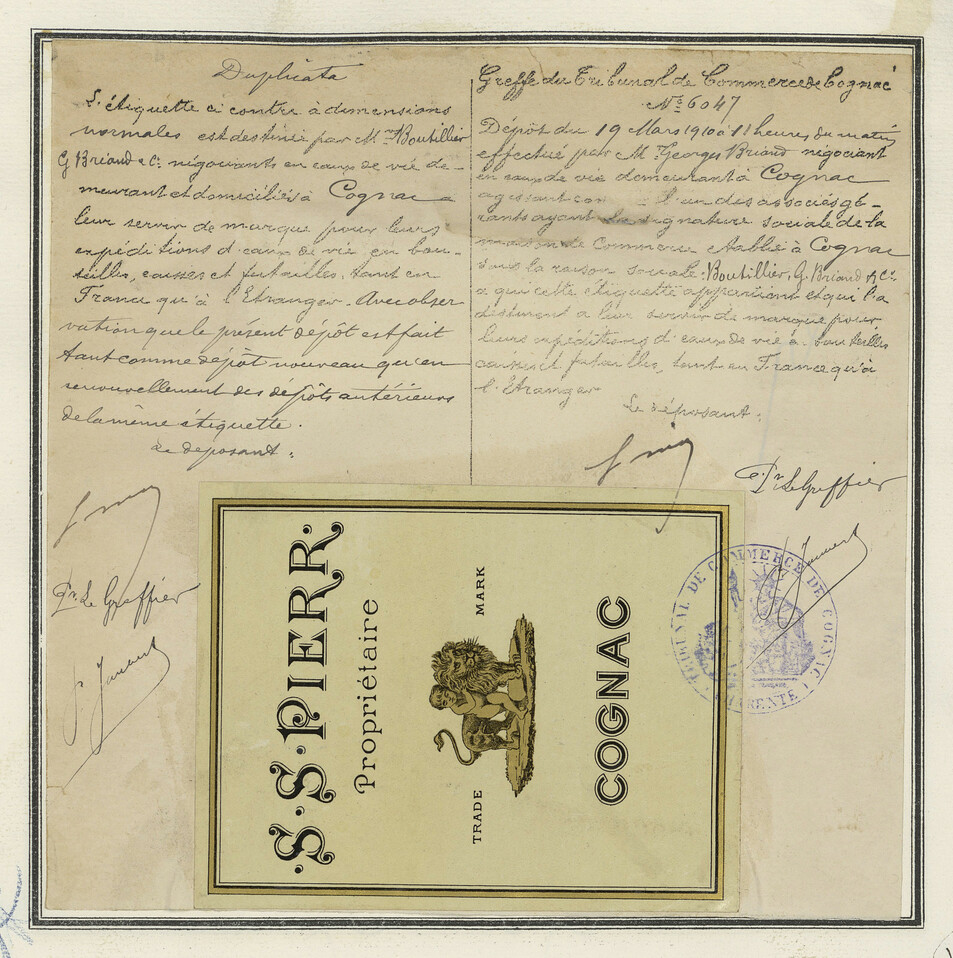 Duplicata
L'étiquette ci contre à dimensions
normales est destinée par M.rs Boutillier
G. Briand & Cie négociants en eaux de vie de-
meurant et domiciliés à Cognac a
leur servir de marque pour leurs
expéditions d'eaux de vie en bou-
teilles, caisses et futailles, tant en
France qu'à l'Etranger. Avec obser
vation que le présent dépôt est fait
tant comme dépôt nouveau qu'en
renouvellement des dépôts antérieurs
de la même étiquette.
Le déposant:
Pr. Le Greffier
Greffe du Tribunal de Commerce de Cognac
No. 6047
Dépôt du 19 Mars 1910 à 11 heures du matin
effectué par M. Georges Briand négociant
en eaux de vie demeurant à Cognac
agissant l'un des associés gé-
rants ayant la signature sociale de la
maison de Commerce établie à Cognac
sous la raison sociale: Boutillier, G. Briand & Cie
a qui cette étiquette appartient et qui l'a
destinent a leur servir de marque pour
leurs expéditions d'eaux de vie en bouteilles
caisses et futailles, tant en France qu'à
l'Etranger
Le déposant:
Pr. Le Greffier
S.S. PIERR.
Propriétaire
TRADE MARK
COGNAC
TRIBUNAL DE COMMERCE DE COGNAC
CHARENTE